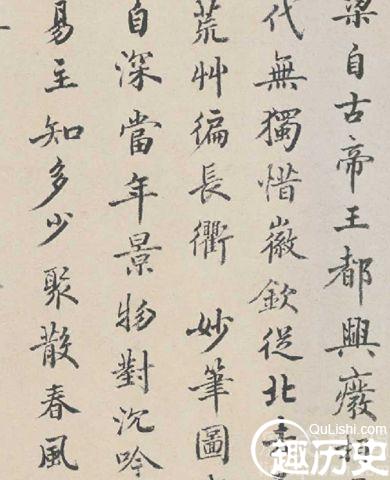 梁自古帝王都興癈相
代無獨惜徽欽從北
荒艸徧長衢 妙筆圖
自深當年景物對沉吟
易主知多少聚散春風
QuLiShi.com
趣历史